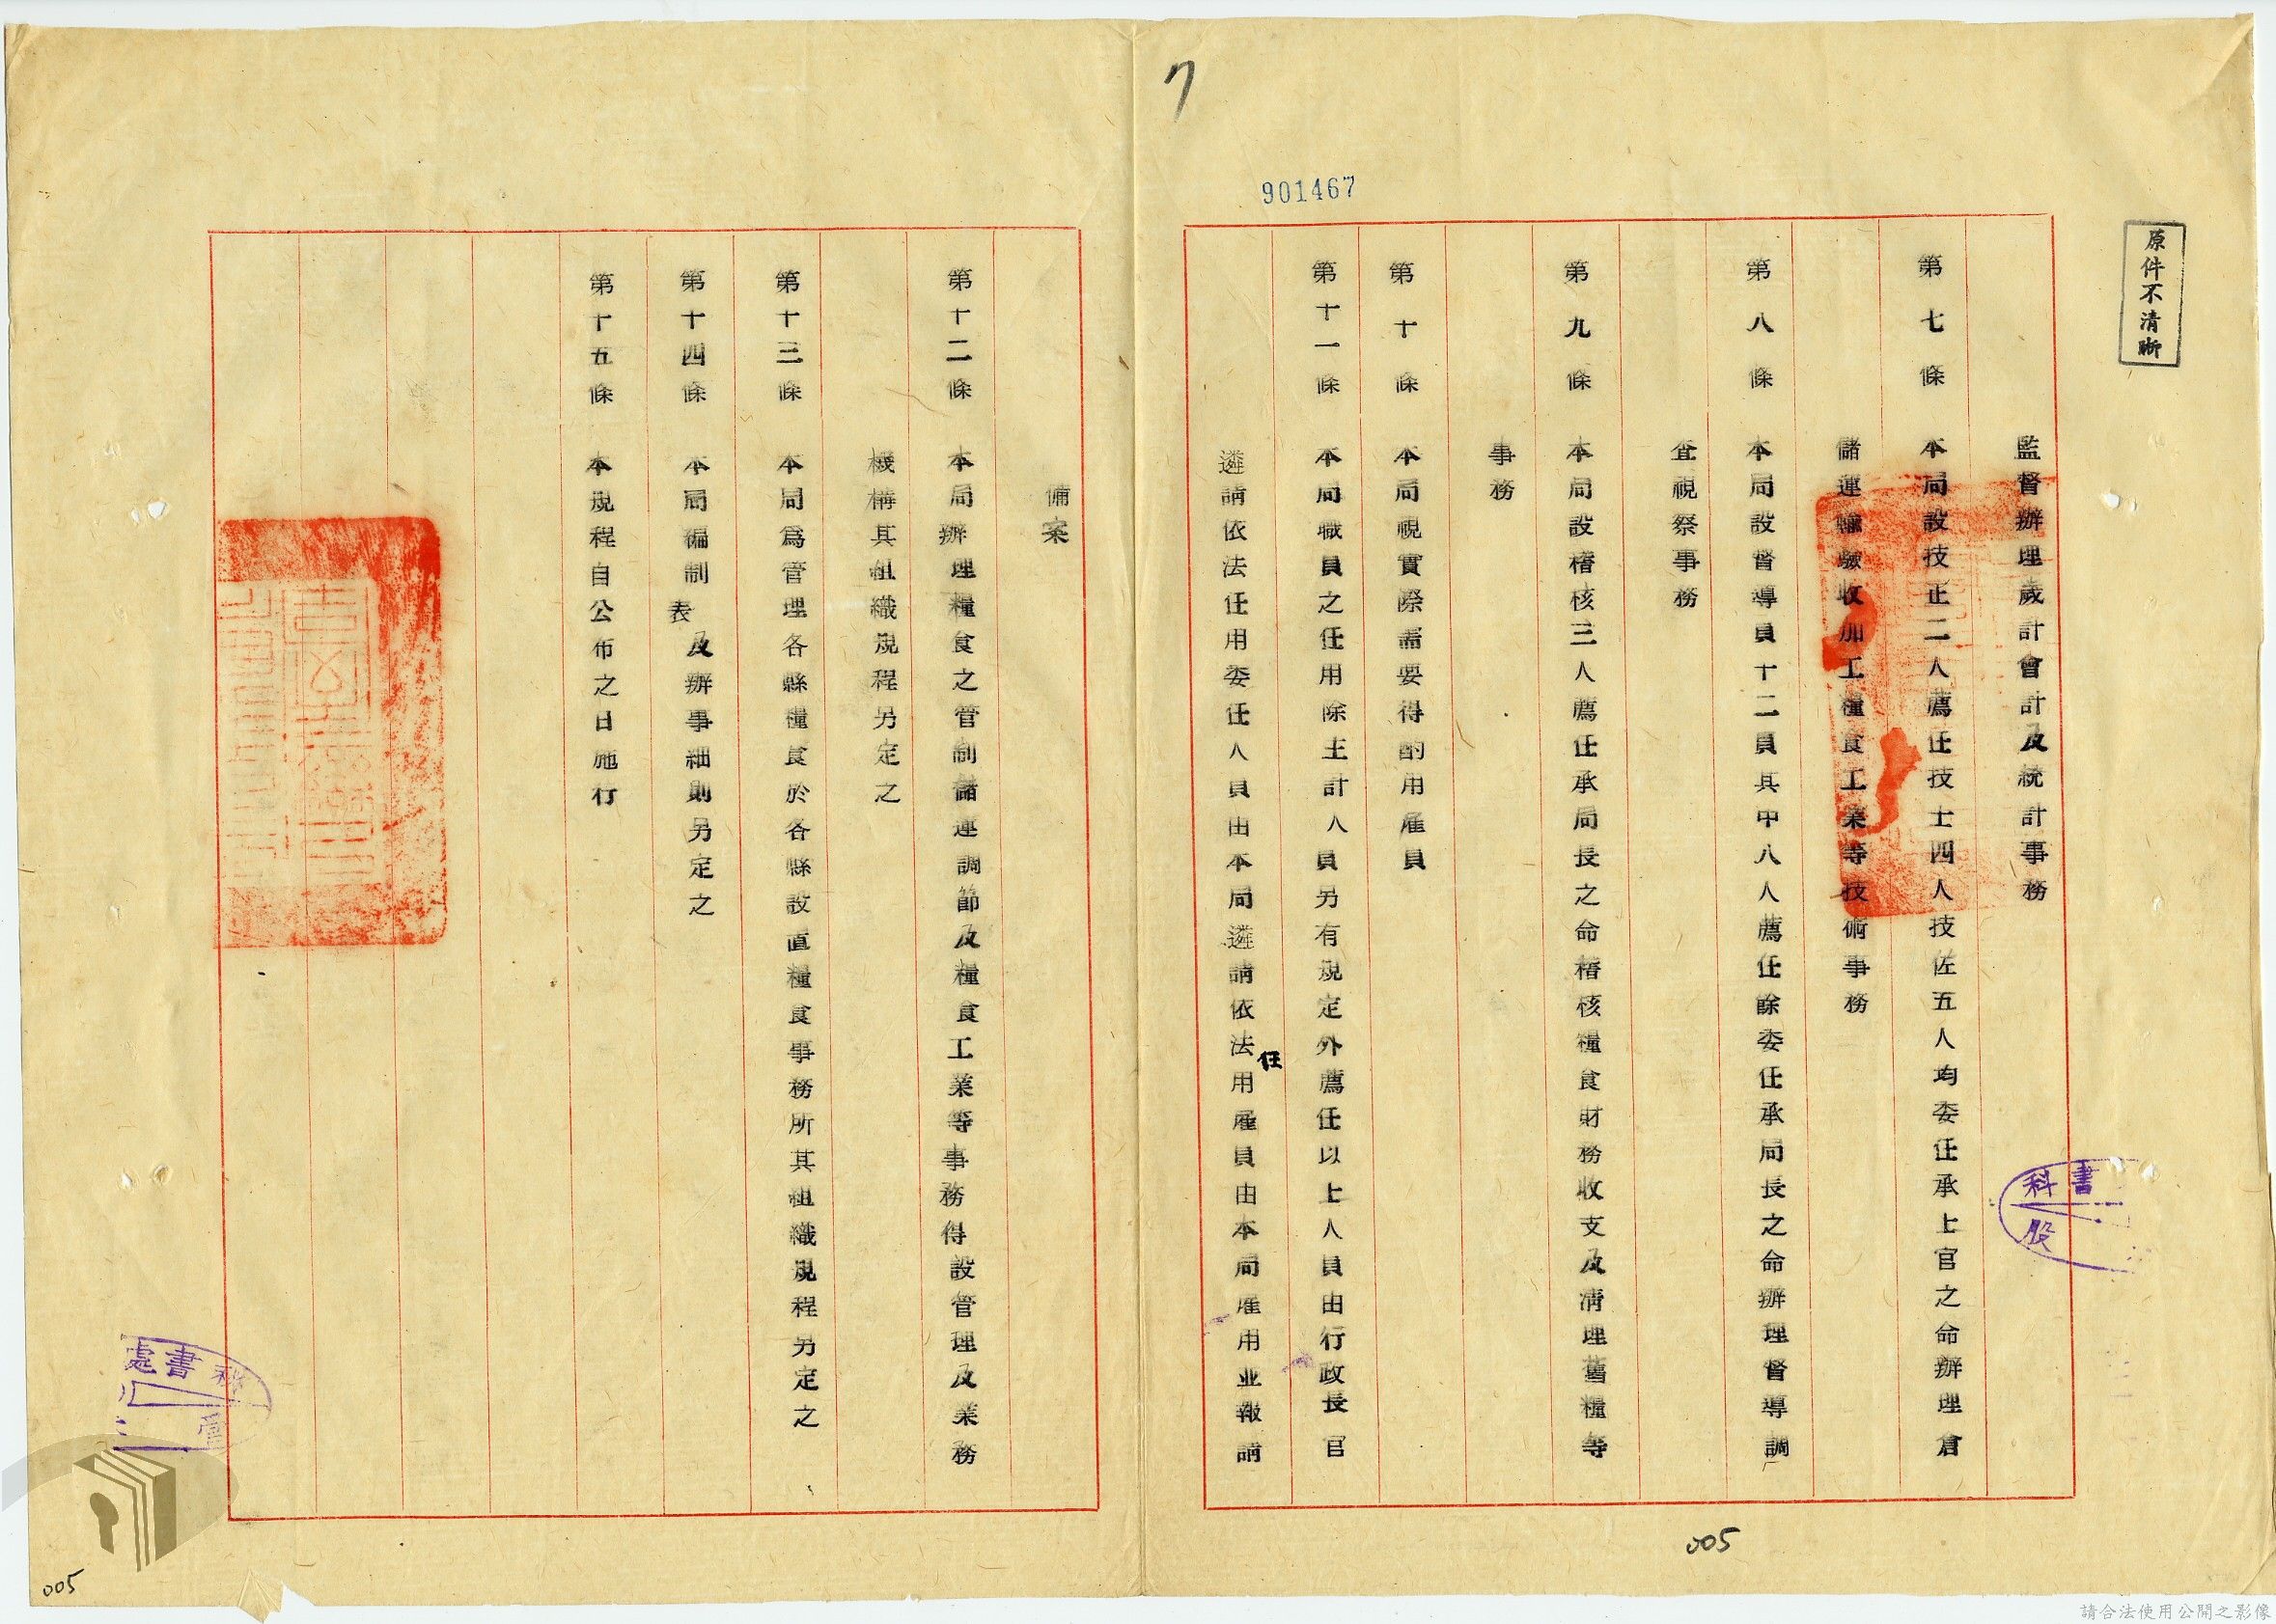 7
901467
原件不清晰
監督辦理歲計會計及統計事務
第七條 本局設技正二人薦任技士四人技佐五人均委任承上官之命辦理倉
儲運輸驗收加工糧食工業等技術事務
第八條 本局設督導員十二員其中八人薦任餘委任承局長之命辦理督導調
查視察事務
第九條 本局設稽核三人薦任承局長之命稽核糧食財務收支及清理舊糧等
事務
第十條 本局視實際需要得酌用雇員
第十一條 本局職員之任用除主計人員另有規定外薦任以上人員由行政長官
遴請依法任用委任人員由本局遴請依法任用雇員由本局雇用並報請
備案
第十二條 本局辦理糧食之管制儲運調節及糧食工業等事務得設管理及業務
機構其組織規程另定之
第十三條 本局為管理各縣糧食於各縣設直糧食事務所其組織規程另定之
第十四條 本局編制表及辦事細則另定之
第十五條 本規程自公布之日施行
書科
股
處書科
005
005
請合法使用公開之影像